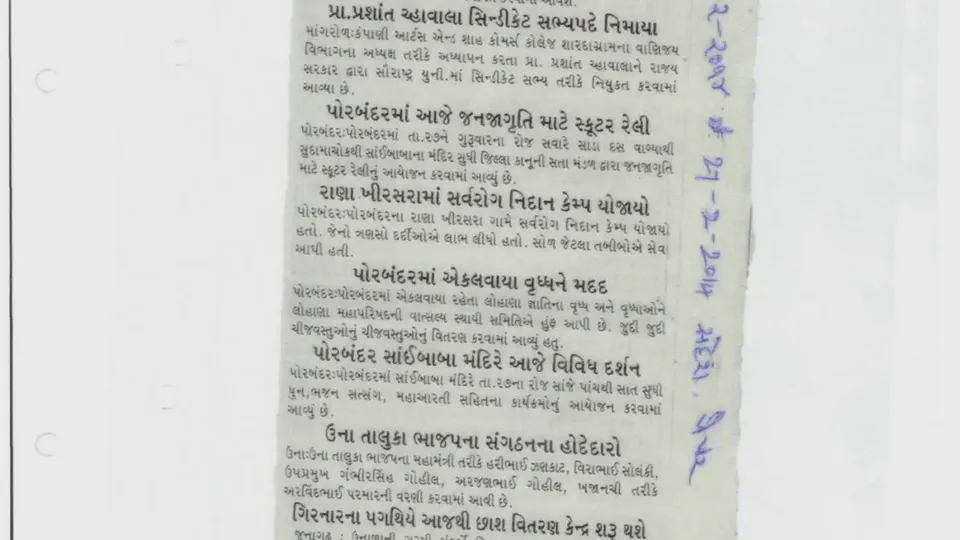 પ્રા.પ્રશાંત ચ્હાવાલા સિન્ડીકેટ સભ્યપદે નિમાયા
માંગરોળઃકંપાણી આર્ટસ એન્ડ શાહ કોમર્સ કોલેજ શારદાગ્રામના વાણિજય
વિભાગના અધ્યક્ષ તરીકે અધ્યાપન કરતા પ્રા. પ્રશાંત ચ્હાવાલાને રાજય
સરકાર દ્વારા સૌરાષ્ટ્ર યુની.માં સિન્ડીકેટ સભ્ય તરીકે નિયુકત કરવામાં
આવ્યા છે.
પોરબંદરમાં આજે જનજાગૃતિ માટે સ્કૂટર રેલી
પોરબંદરઃપોરબંદરમાં તા.૨૭ને ગુરૂવારના રોજ સવારે સાડા દસ વાગ્યાથી
સુદામાચોકથી સાંઈબાબાના મંદિર સુધી જિલ્લા કાનૂની સતા મંડળ દ્વારા જનજાગૃતિ
માટે સ્કૂટર રેલીનું આયોજન કરવામાં આવ્યું છે.
રાણા ખીરસરામાં સર્વરોગ નિદાન કેમ્પ યોજાયો
પોરબંદરઃપોરબંદરના રાણા ખીરસરા ગામે સર્વરોગ નિદાન કેમ્પ યોજાયો
હતો. જેનો ત્રણસો દર્દીઓએ લાભ લીધો હતો. સોળ જેટલા તબીબોએ સેવ
આપી હતી.
પોરબંદરમાં એકલવાયા વૃધ્ધને મદદ
પોરબંદરઃપોરબંદરમાં એકલવાયા રહેતા લોહાણા જ્ઞાતિના વૃધ્ધ અને વૃધ્ધાઓને
લોહાણા મહાપરિષદની વાત્સલ્ય સ્થાયી સમિતિએ હુંફ આપી છે. જુદી જુદી
ચીજવસ્તુઓનું ચીજવસ્તુઓનું વિતરણ કરવામાં આવ્યું હતુ.
પોરબંદર સાંઈબાબા મંદિરે આજે વિવિધ દર્શન
પોરબંદરઃપોરબંદરમાં સાંઈબાબા મંદિરે તા.૨૭ના રોજ સાંજે પાંચથી સાત સુધી
ધુન,ભજન સત્સંગ, મહાઆરતી સહિતના કાર્યક્રમોનું આયોજન કરવામાં
આવ્યું છે.
ઉના તાલુકા ભાજપના સંગઠનના હોદેદારો
ઉનાઃઉના તાલુકા ભાજપના મહામંત્રી તરીકે હરીભાઈ ઝણકાટ, વિરાભાઈ સોલંકી,
ઉપપ્રમુખ ગંભીરસિંહ ગોહીલ, અરજણભાઈ ગોહીલ, ખજાનચી તરીકે
અરવિંદભાઈ પરમારની વરણી કરવામાં આવી છે.
ગિરનારના પગથિયે આજથી છાશ વિતરણ કેન્દ્ર શરૂ થશે
27-2-2014